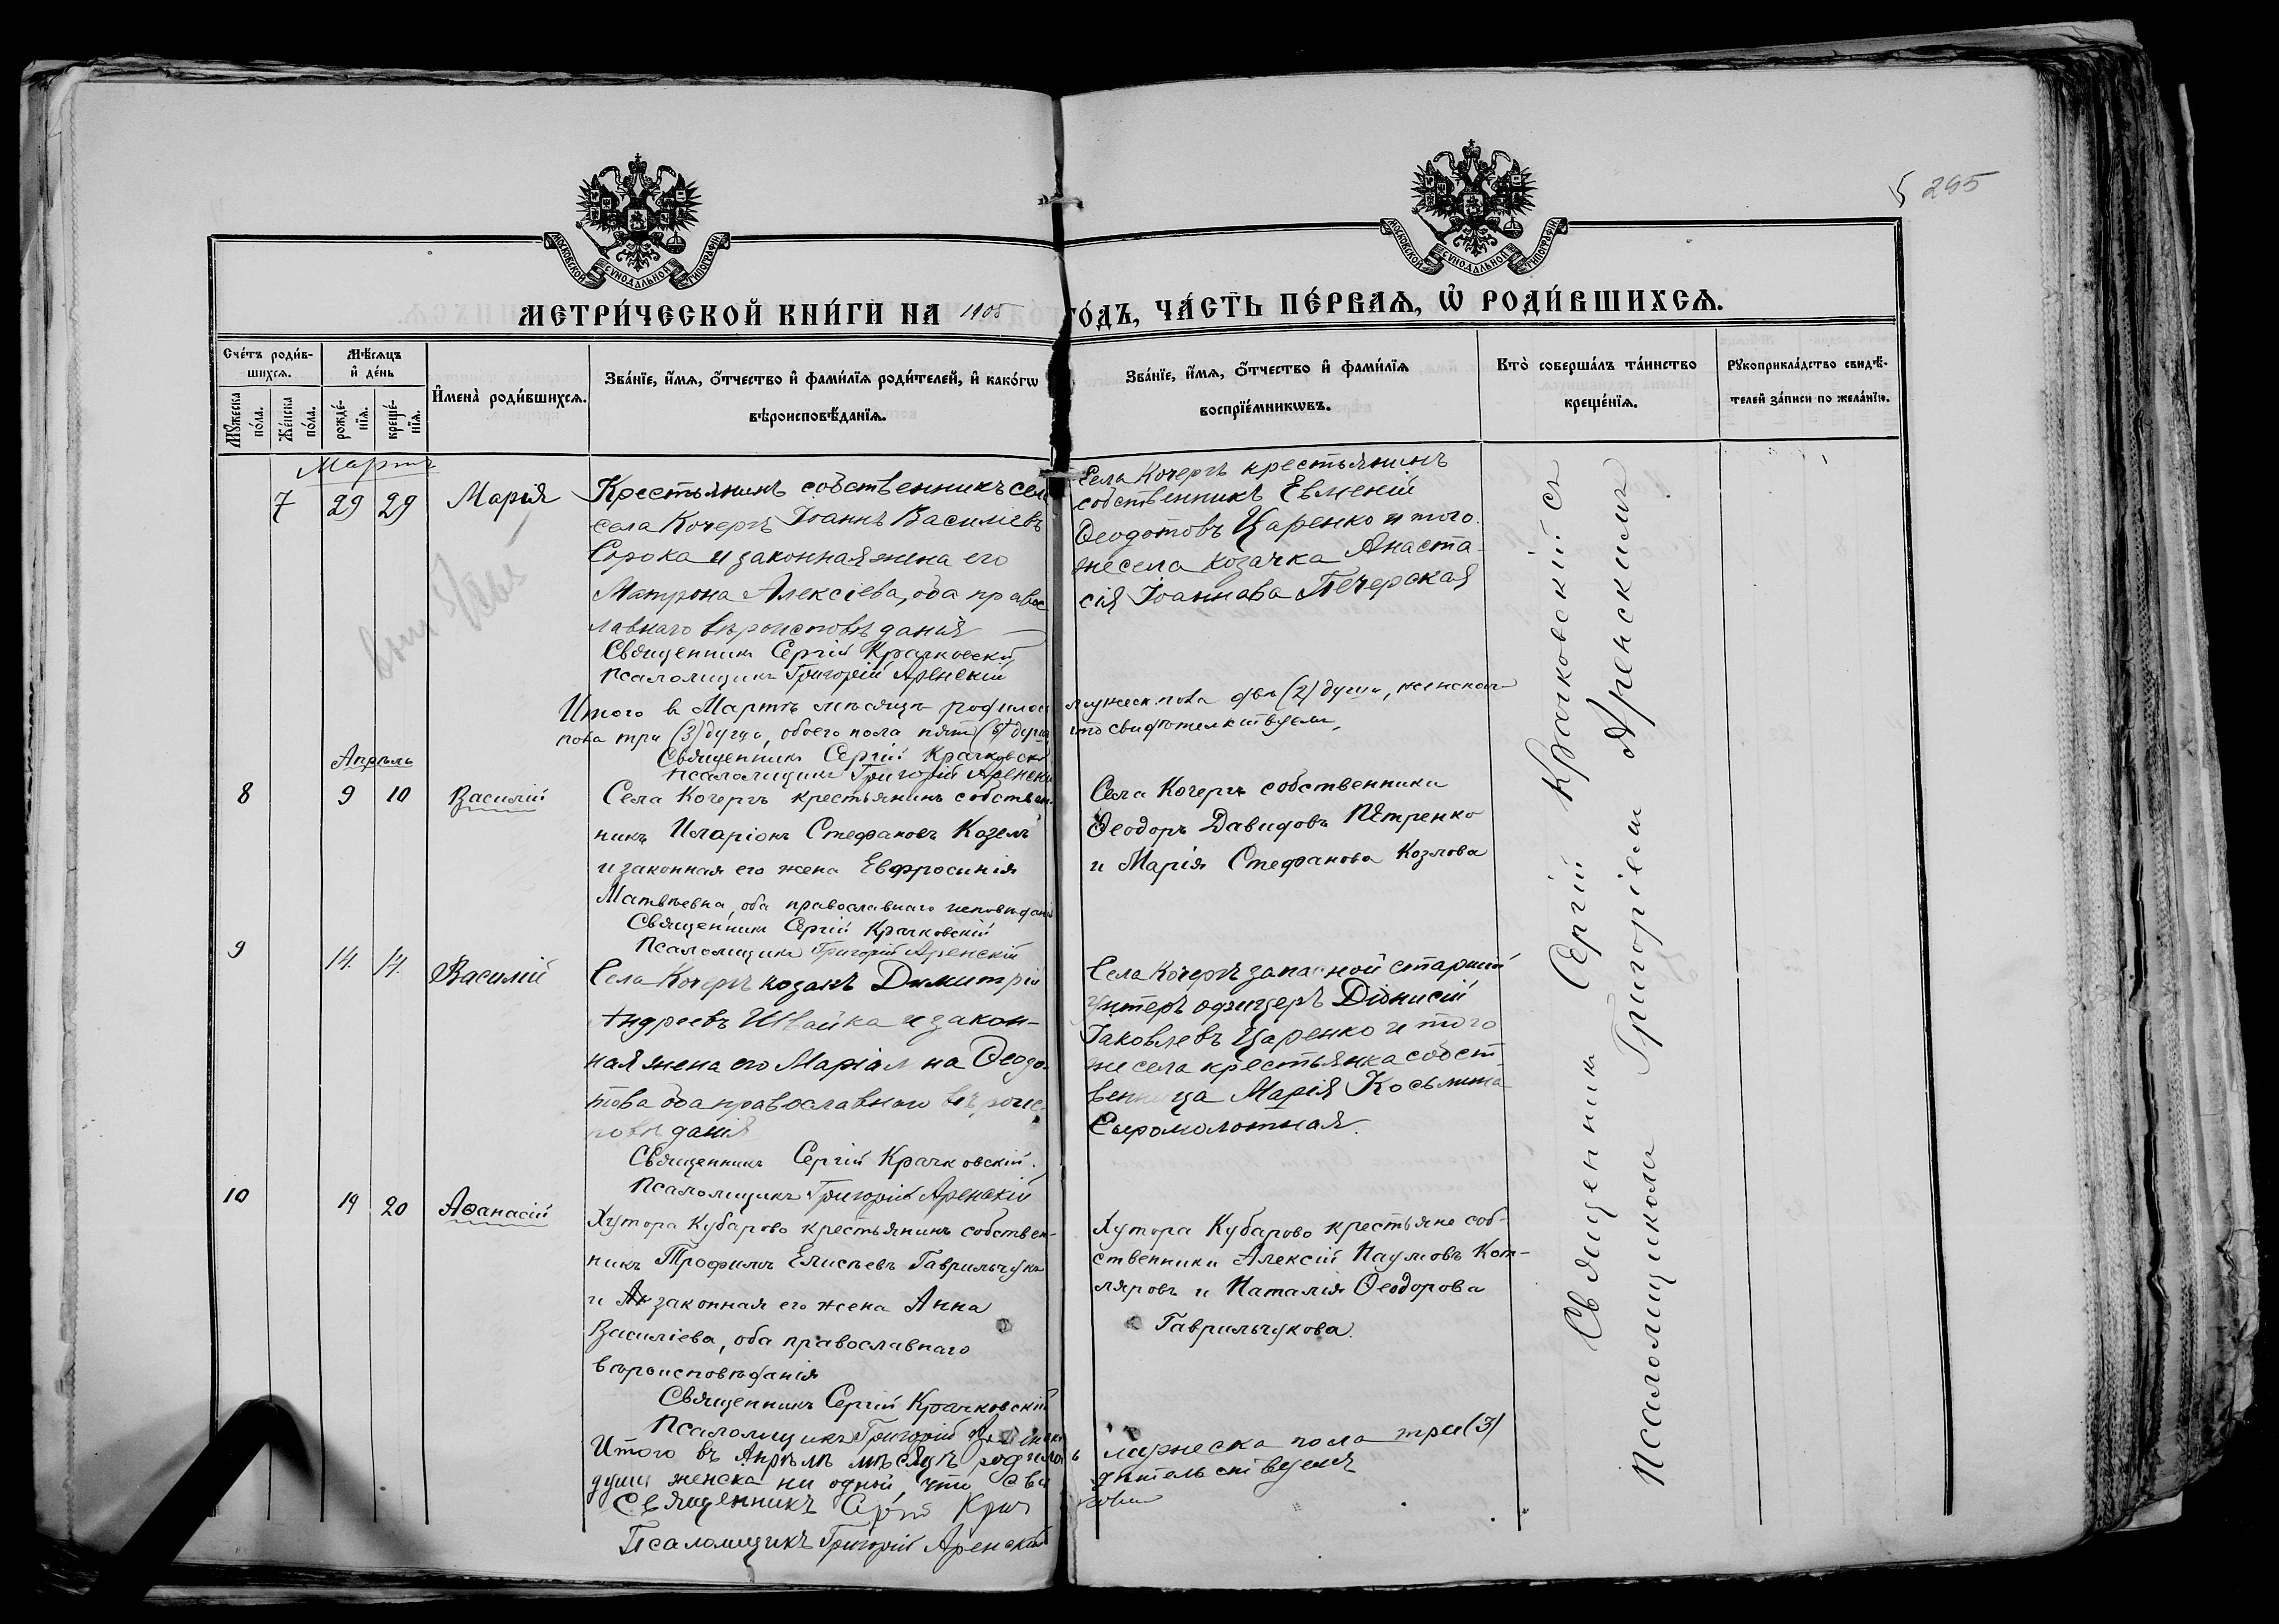 5 295
МОСКОВСКОЙ СѴНОДАЛЬНОЙ ТИПОГРАФІИ
МОСКОВСКОЙ СѴНОДАЛЬНОЙ ТИПОГРАФІИ
МЕТРИ́ЧЕСКОЙ КНИ́ГИ НА 1905 ГО́ДЪ, ЧА́СТЬ ПЕ́РВАѦ, Ѡ҆ РОДИ́ВШИХСѦ.
Сче́тъ роди́в-
шихсѧ.
Мꙋ́жеска по́ла.
Же́нска по́ла.
Мѣ́сѧцъ
и҆ де́нь
рожде́-
нїѧ.
креще́-
нїѧ.
И҆мена̀ роди́вшихсѧ.
Зва́нїе, и҆́мѧ, ѻ҆́тчество и҆ фами́лїѧ роди́телей, и҆ како́гѡ
вѣроисповѣ́данїѧ.
Зва́нїе, и҆́мѧ, ѻ҆́тчество и҆ фами́лїѧ
воспрїе́мникѡвъ.
Кто̀ соверша́лъ та́инство
креще́нїѧ.
Рꙋкоприкла́дство свидѣ́-
телей за́писи по жела́нїю.
Мартъ
7 29 29 Марія
Крестьянинъ собственникъ
села Кочергъ Іоаннъ Василіевъ
Сорока и законная жена его
Матрона Алексіева, оба правос
лавнаго вѣроисповѣданія
Священникъ Сергій Крачковскій
Псаломщикъ Григорій Аренскій
Села Кочергъ крестьянинъ
собственникъ Евменій
Ѳеодотовъ Царенко и того
же села козачка Анаста-
сія Іоаннова Печерская
Итого въ Мартѣ мѣсяцѣ родилос мужеск. пола двѣ (2) души, женскаго
пола три (3) души, обоего пола пять (5) душъ что свидѣтельствуемъ
Священникъ Сергій Крачковскі
Псаломщикъ Григорій Аренскі
Апрѣль
8 9 10 Василій
Села Кочергъ крестьянинъ собствен-
никъ Иларіонъ Стефановъ Козелъ
и законная его жена Евфросинія
Матвѣевна, оба православнаго исповѣданія
Священникъ Сергій Крачковскій
Псаломщикъ Григорій Аренскій
Села Кочергъ собственники
Ѳеодоръ Давидовъ Петренко
и Марія Стефанова Козлова
9 14 14 Василій
Села Кочергъ козакъ Димитрій
Андреевъ Швайка и закон-
ная жена его Марія на Ѳеодо-
това оба православнаго вѣроис-
повѣданія
Священникъ Сергій Крачковскій.
Псаломщикъ Григорій Аренскій
Села Кочергъ запасной старшій
унтеръ офицеръ Діонисій
Іаковлевъ Царенко и того
же села крестьянка собст
венница Марія Косьмина
Сыромолотная.
10 19 20 Аѳанасій
Хутора Кубарово крестьянинъ собствен-
никъ Трофимъ Елисѣевъ Гаврильчукъ
и законная его жена Анна
Василіева, оба православнаго
вѣроисповѣданія
Священникъ Сергій Крачковскій
Псаломщикъ Григорій
Хутора Кубарово крестьяне соб-
ственники Алексій Наумовъ Кот-
ляровъ и Наталія Ѳеодорова
Гаврильчукова.
Итого въ Апрѣлѣ мѣсяцѣ родилось мужеска пола три (3)
души женска ни одной, что сви дѣтельствуемъ
Священникъ Сергій Крач ковскій
Псаломщикъ Григорій Аренскій
Священникъ Сергій Крачковскій съ
Псаломщикомъ Григоріемъ Аренскимъ